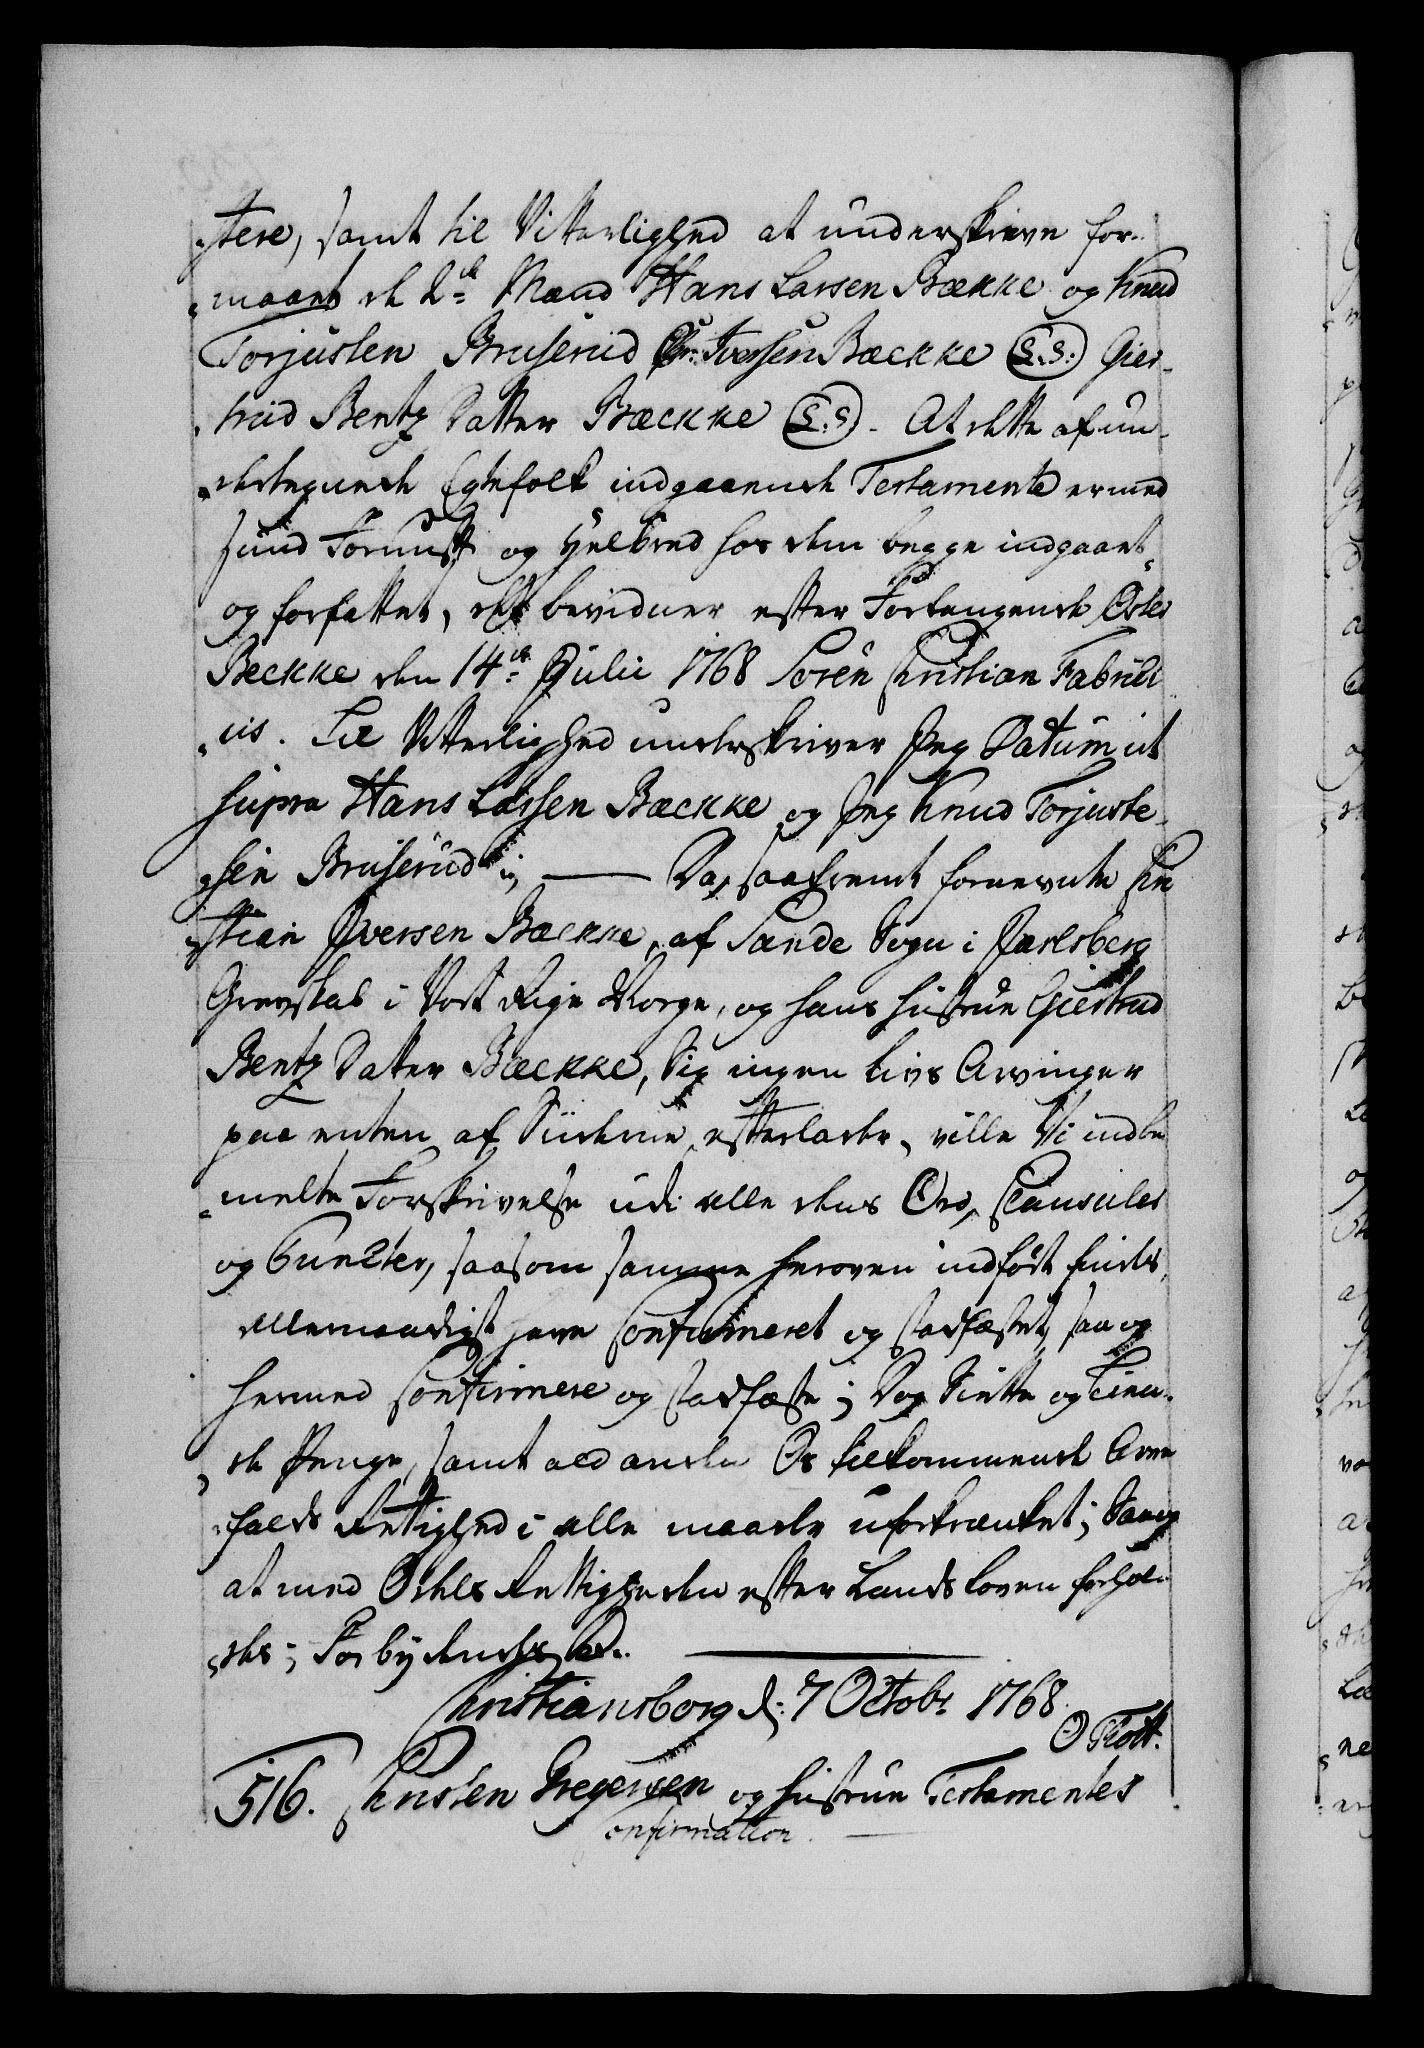 stere, samt til Vitterlighed at underskrive for-
maaet de 2de Mænd Hans Larsen Bække og Knud
Torjussen Bruserud Chr: Iversen Bæckke (L.S.) Gier-
trud Bentz Datter Bæckke (L.S.) - At dette af un-
dertegnede Egtefolk indgaaende Testamente er med
sund Fornuft og Helbred hos dem begge indgaaet
og forfattet, det bevidner efter Forlangende
Beckke den 14de Julii 1768 Soren Christian Fabrici-
us. Til Vitterlighed underskriver Jeg Datum ut
supra Hans Larsen Bæckke og Jeg Knud Torjuste-
sen Bruserud ;, — Da, saafremt fornevnte Chri-
stian Iversen Bæckke, af Sande Sogn i Jarlsberg
Grevskab i Vort Rige Norge, og hans Hustrue Giertrud
Bentz Datter Bæckke, Sig ingen Livs Arvinger
paa enten af Siiderne efterlader, ville Vi indbe-
melte Forskrivelse udi alle dens Ord, Clausuler
og Puncter, saasom samme heroven indført findes,
allernaadigst have Confirmeret og stadfæstet, saa og
hermed Confirmere og stadfæste ; Dog Siette og Tien-
de Penge, samt ald anden Os tilkommende Arve
falds Rettighed i alle maader uforkrænket ; Saa og
at med Odels Rettigheden efter Lands Loven forhol-
des ; Forbydendes &c. —
Christiansborg d: 7 Octobr 1768
O Thott.
516. Christen Gregersen og Hustrue Testamentes
Confirmation. —